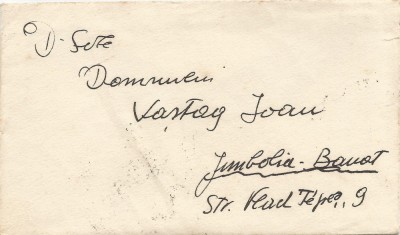 D-Sale
Domnului
Vaștag Ioan
Jimbolia-Banat
Str. Vlad Țepeș, 9